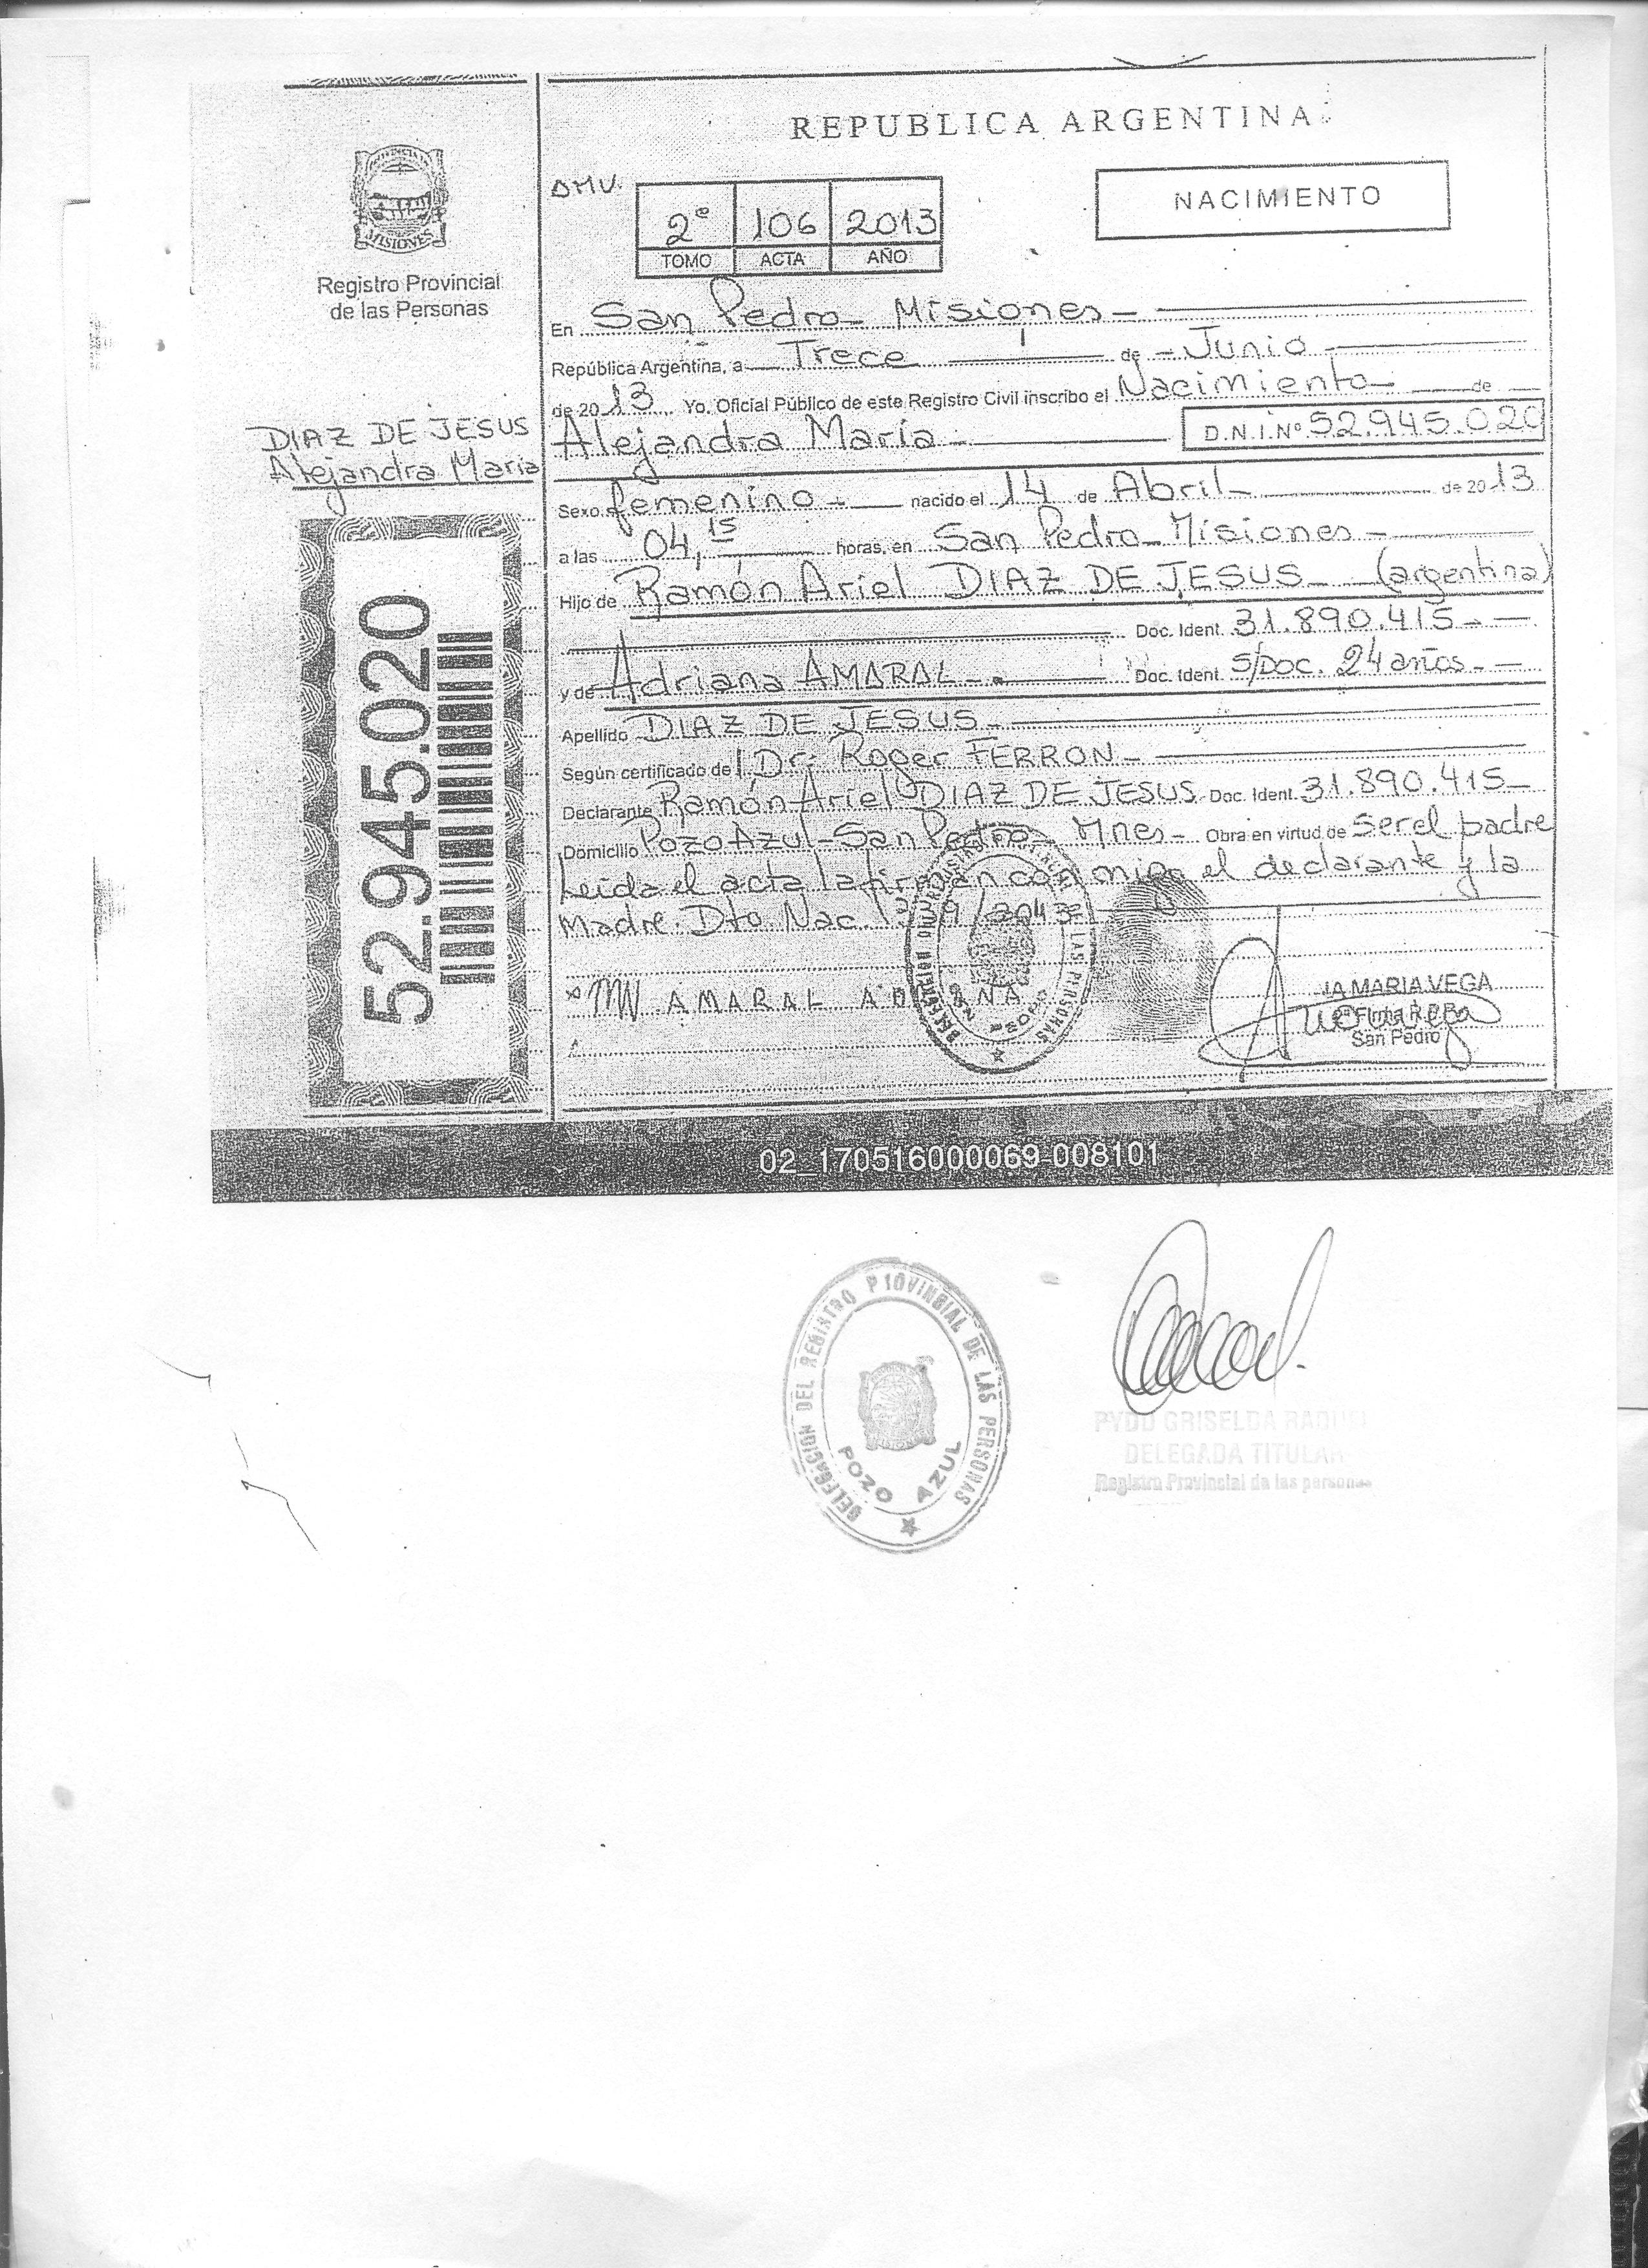 REPUBLICA ARGENTINA
MISIONES
Registro Provincial
de las Personas
DIAZ DE JESUS
Alejandra Maria
52.945.020
DMV.
2° 106 2013
TOMO ACTA AÑO
NACIMIENTO
En San Pedro - Misiones -
República Argentina, a Trece de - Junio -
de 2013 Yo, Oficial Público de este Registro Civil inscribo el Nacimiento - de -
Alejandra María - D.N.I. N° 52.945.020
Sexo femenino - nacido el 14 de Abril - de 2013
a las 04,15 horas, en San Pedro - Misiones -
Hijo de Ramón Ariel DIAZ DE JESUS - (argentina)
Doc. Ident. 31.890.415 - -
y de Adriana AMARAL - Doc. Ident. S/Doc. 24 años - -
Apellido DIAZ DE JESUS -
Según certificado del Dr. Roger FERRON -
Declarante Ramón Ariel DIAZ DE JESUS Doc. Ident. 31.890.415 -
Domicilio Pozo Azul - San Pedro - Mnes - Obra en virtud de ser el padre
Leida el acta la firman con migo el declarante y la
Madre. Dto Nac.
AMARAL
MARIA VEGA
San Pedro
02_170516000069-008101
DELEGACION DEL REGISTRO PROVINCIAL DE LAS PERSONAS
POZO AZUL
GRISELDA
DELEGADA TITULAR
Registro Provincial de las personas